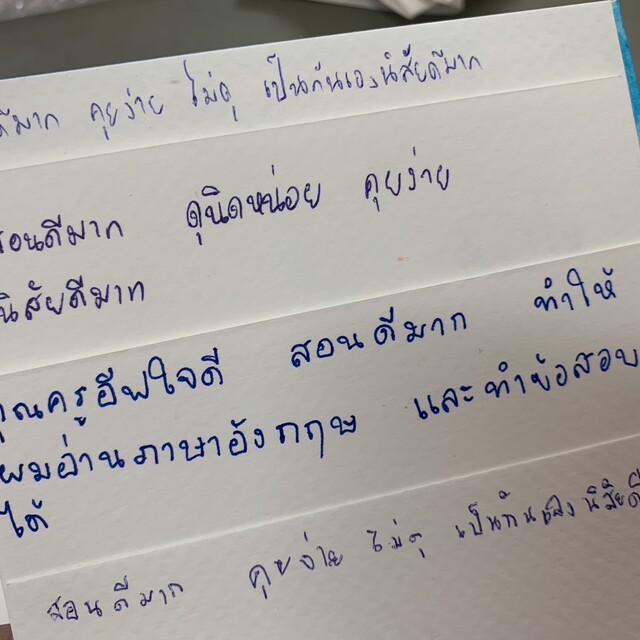 ดีมาก คุยง่าย ไม่ดุ เป็นกันเองนิสัยดีมาก
สอนดีมาก ดุนิดหน่อย คุยง่าย
นิสัยดีมาก
คุณครูอีฟใจดี สอนดีมาก ทำให้
ผมอ่านภาษาอังกฤษ และทำข้อสอบ
ได้
สอนดีมาก คุยง่าย ไม่ดุ เป็นกันเองนิสัยดี